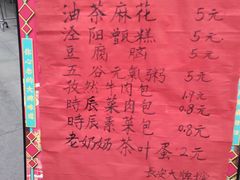 油茶麻花 5元
泾阳甑糕 5元
豆腐脑 5元
五谷元氣粥 5元
孜然牛肉包 1.9元
時辰菜肉包 0.8元
時辰素菜包 0.8元
老奶奶茶叶蛋 2元